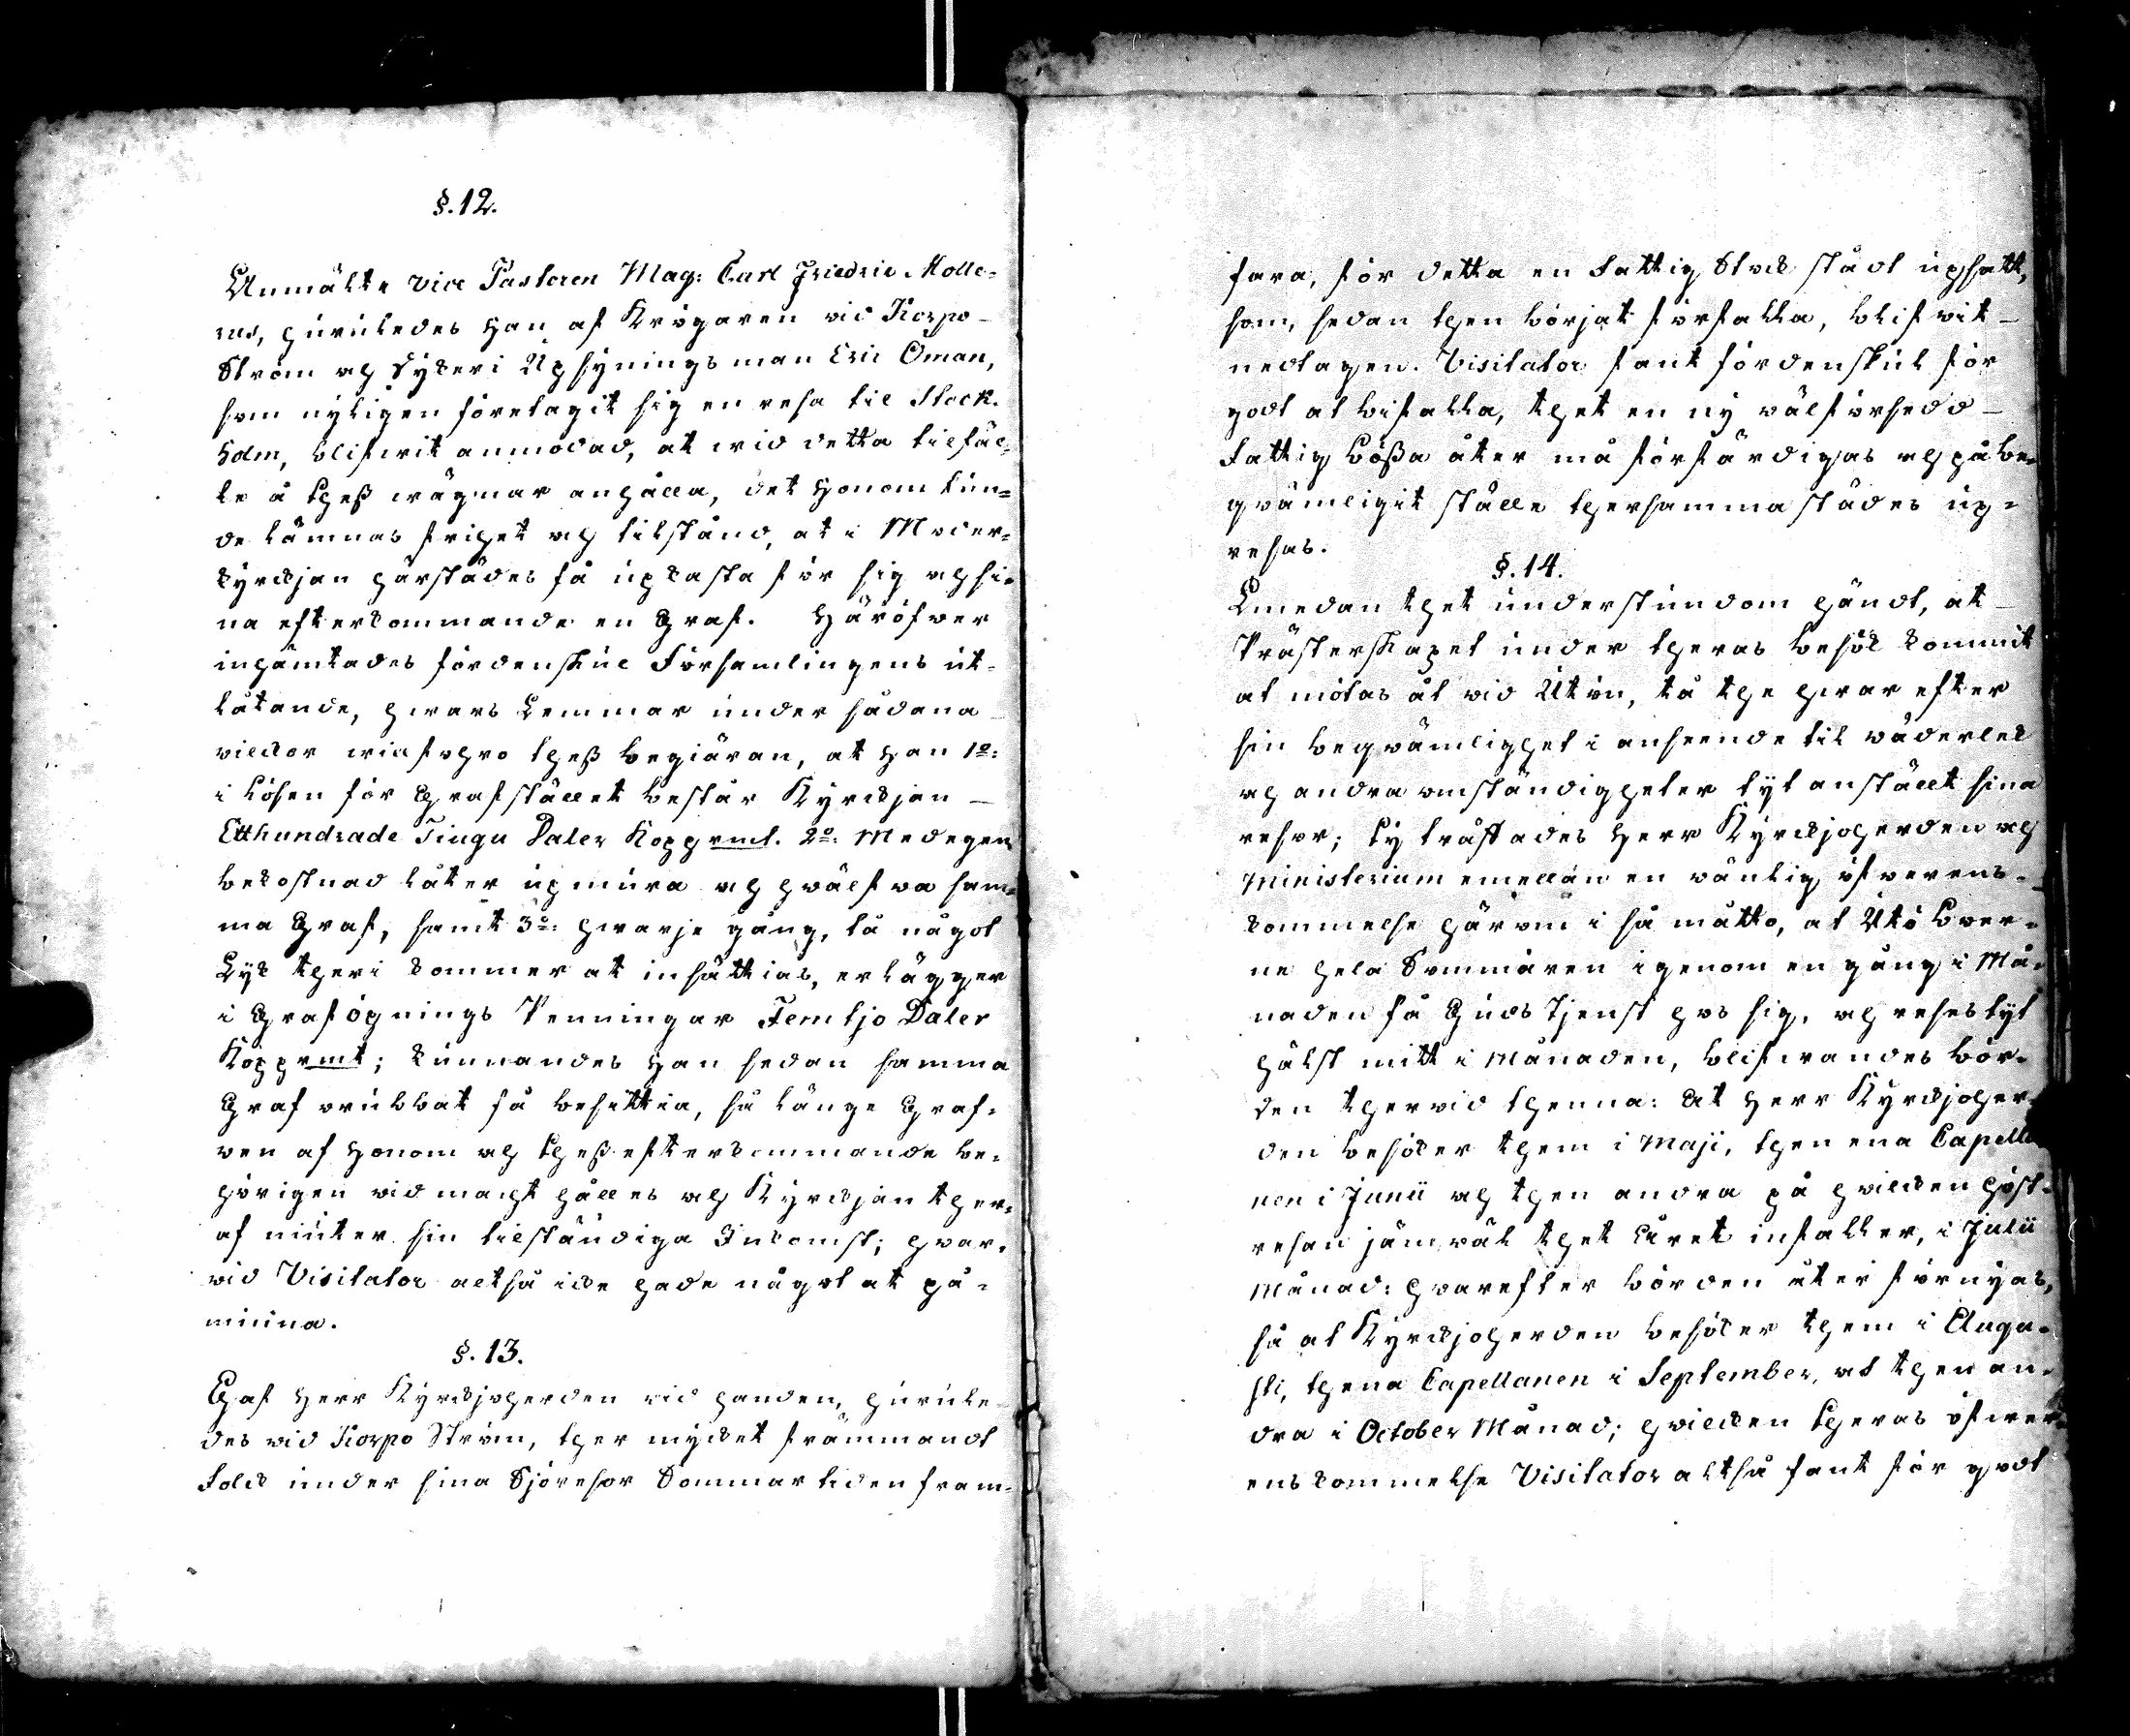 §. 12.
Anmälte vice Pastoren Mag: Carl Friedric Molle=
rus, huruledes Han af Krögaren vid Korpo-
Ström och Fyskeri Upsyningsman Eric Öman,
som nyligen företagit sig en resa til Stock-
holm, blifwit anmodad, at wid detta tilfäl=
le å theß wägnar anhålla, det Honom kun=
de lämnas frihet och tilstånd, at i Moder=
kyrckjan härstädes få upkasta för sig och si=
na efterkommande en Graf. Häröfwer
inhämtades fördenskul Församlingens ut-
låtande, hwars Lemmar under sådana
vilckor wid foghro theß begiäran, at Han 1o:
i Lösen för Grafstället består Kyrckjan -
Etthundrade Tiugu Daler Kopparmt. 2o: Med egen
bekostnad låter upmura och hwälfwa sam=
ma Graf, samt 3o: hwarje gång, tå något
Lijk theri kommer at insättias, erlägger
i Graföpnings Penningar Femtjo Daler
Kopparmt; kunnandes Han sedan samma
Graf orubbat få besittia, så länge Graf-
ven af Honom och theß efterkommande be-
hörigen vid macht hålles och Kyrckjan ther=
af niuter sin tilständiga Inkomst; hvar-
vid Visitator altså icke hade något at på-
minna.
§. 13.
Gaf Herr Kyrckjoherden vid handen, hurule
des vid Korpo Ström, ther mycket främmandt
Folck under sina Sjöresor Sommartiden fram-
fara, för detta en Fattig Stock stådt upsatt,
som, sedan then börjat förfalla, blifwit -
nedtagen. Visitator fant fördenskul för
godt at bifalla, thet en ny välförsedd -
Fattig Bößa åter må förfärdigas och på be-
qvämligit ställe thersammastädes up=
resas.
§. 14.
Emedan thet understundom händt, at -
Prästerskapet under theras besök kommit
at mötas åt vid Utön, tå the hwar efter
sin beqvämlighet i anseende til väderlek
och andra omständigheter tyt anstält sina
resor; ty träffades Herr Kyrckjoherden och
Ministerium emellan en vänlig öfverens-
kommelse härom i så måtto, at Utö Boer-
ne hela Sommaren igenom en gång i Må-
naden få Guds Tjenst hos sig, och reses tyt
hälst mitt i Månaden, blifwandes bör-
den thervid thenna: At Herr Kyrckjoher-
den besöker them i Maji, then ena Capella
nen i Junii och then andra på hvilcken höst-
resan jämväl thet Året infaller, i Julii
Månad: hvarefter börden åter förnyas,
så at Kyrckjoherden besöker them i Augu-
sti, thena Capellanen i September, at then an-
dra i October Månad; hvilcken theras öfwer-
enskommelse Visitator altså fant för godt